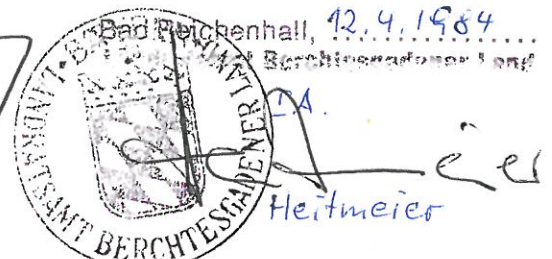 Bad Reichenhall, 12.4.1984
Landratsamt Berchtesgadener Land
I.A.
Heitmeier
LANDRATSAMT BERCHTESGADENER LAND